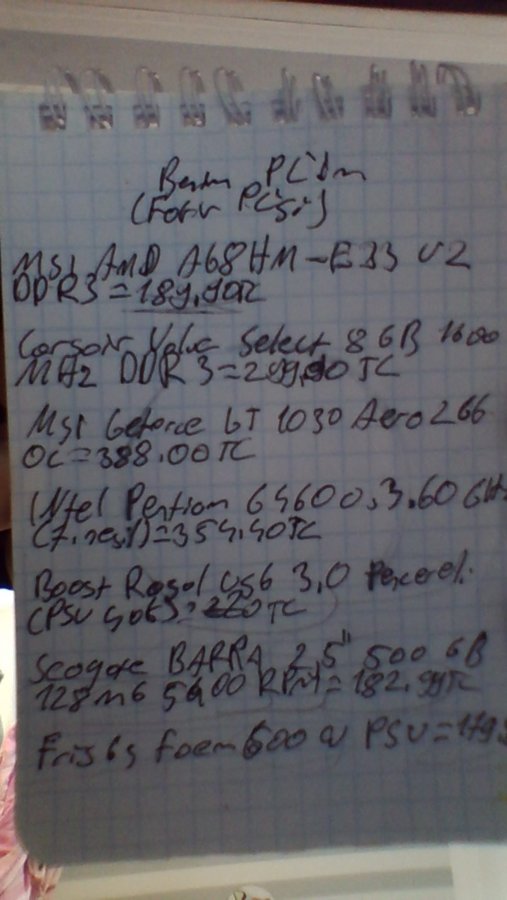 Benim PC'im
(Form PC'si)
MSI AMD A68HM-E33 V2
DDR3=189,90TL
Corsair Value Select 8GB 1600
MHz DDR3=299,90TL
MSI Geforce GT 1030 Aero 2G6
OC=388.00TL
INtel Pentium G4600,3.60GHz
=354.40TL
Boost USB 3,0
(PSU 220TL
Seagate BARRA 2,5" 500 GB
128mb 5400 RPM=182.99TL
600 W PSU=179